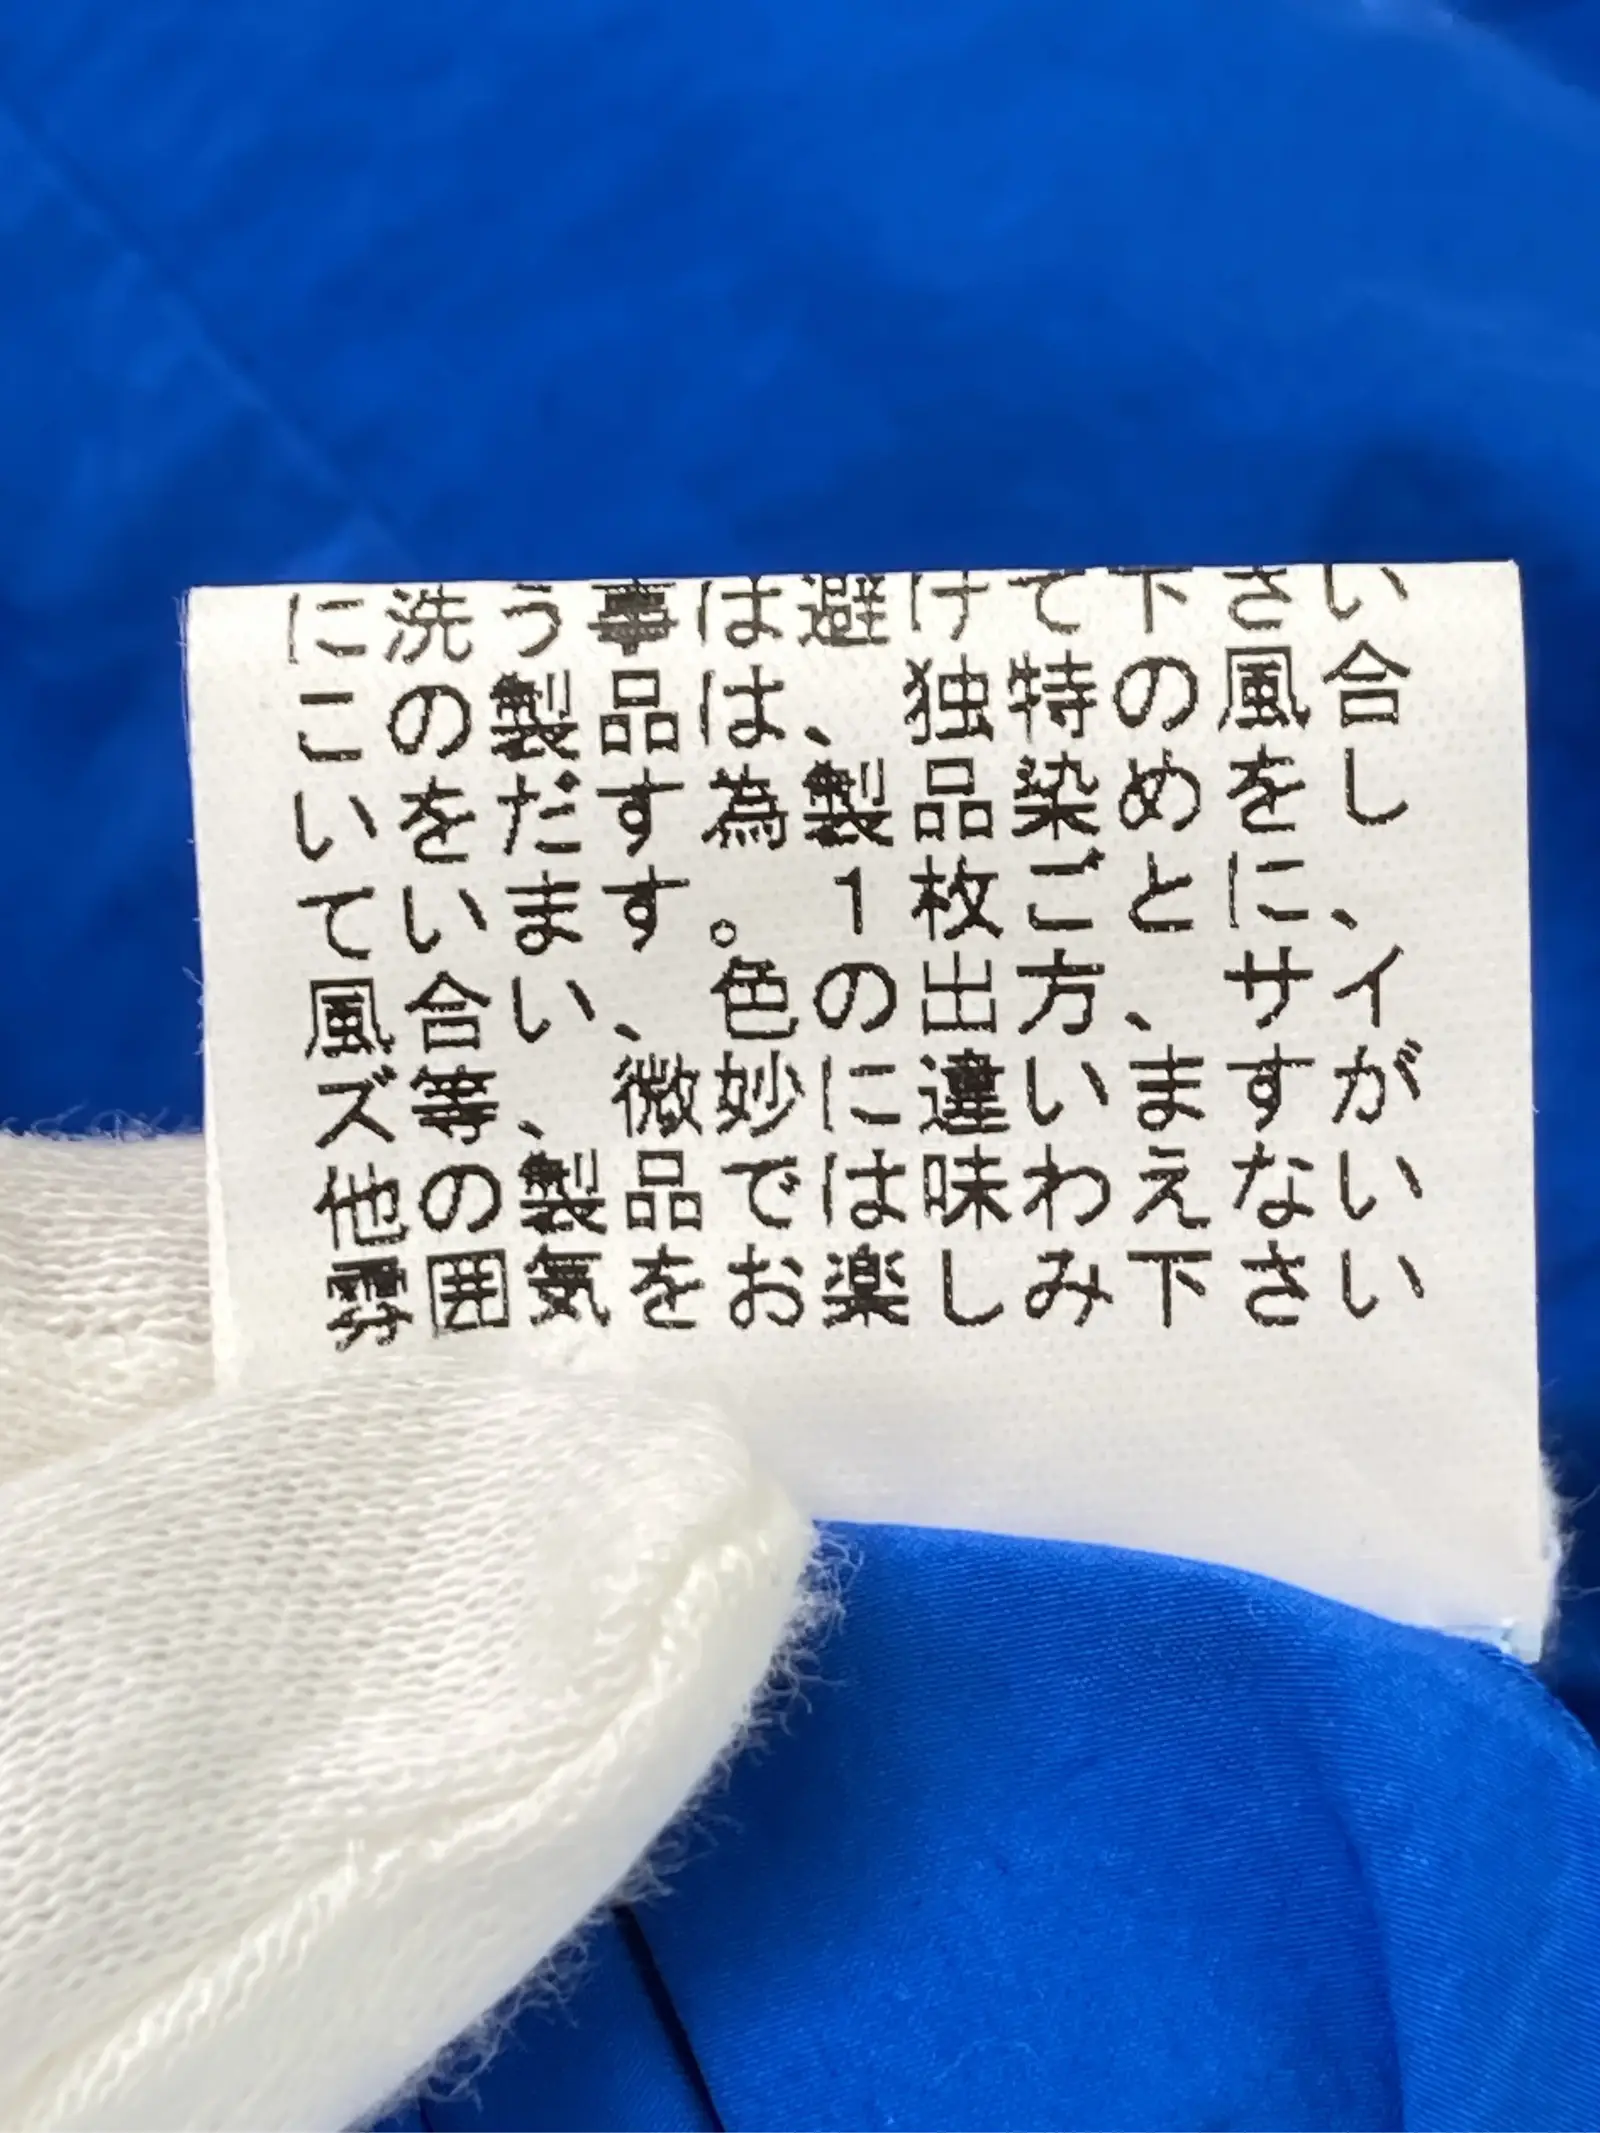 に洗う事は避けて下さい
この製品は、独特の風合
いをだす為製品染めをし
ています。1枚ごとに、
風合い、色の出方、サイ
ズ等、微妙に違いますが
他の製品では味わえない
雰囲気をお楽しみ下さい